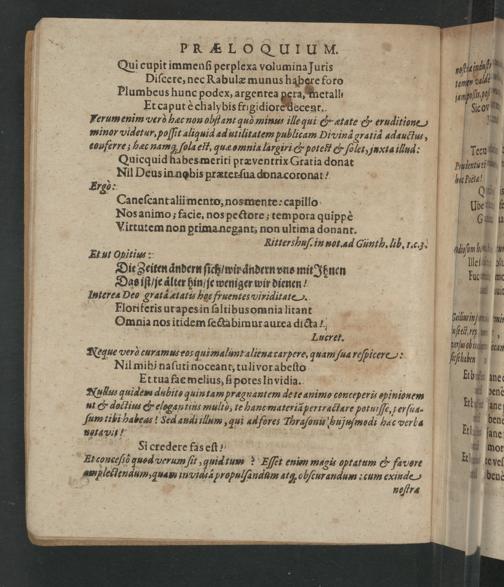 PRÆLOQUIUM.
Qui cupit immensi perplexa volumina Juris
Discere, nec Rabulæ munus habere foro
Plumbeus hunc podex, argentea pera, metalli
Et caput è chalybis frigidiore decent.
Verum enim verò hac non obstant quò minus ille qui & ætate & eruditione
minor videtur, possit aliquid ad utilitatem publicam Divinâ gratiâ adauctus,
conferre; hac namq, sola est, quæ omnia largiri & potest & solet, juxta illud:
Quicquid habes meriti præventrix Gratia donat
Nil Deus in nobis præter sua dona coronat!
Ergò:
Canescant alii mento, nos mente: capillo
Nos animo; facie, nos pectore; tempora quippè
Virtutem non prima negant, non ultima donant.
Rittershus. in not. ad Günth. lib. 1. c. 3.
Et ut Opitius:
Die Zeiten ändern sich/ wir ändern vns mit Ihnen
Das ist/ je älter hin/ je weniger wir dienen!
Interea Deo grata ætatis hoc fruentes viriditate.
Floriferis ut apes in saltibus omnia litant
Omnia nos itidem sectabimur aurea dicta!
Lucret.
Neque verò curamus eos qui malunt aliena carpere, quam sua respicere:
Nil mihi nasuti noceant, tu livor abesto
Et tua fac melius, si potes Invidia.
Nullus quidem dubito quin tam prægnantem de te animo conceperis opinionem
ut & doctius & elegantius multò, te hanc materiã pertractare potuisse, persua-
sum tibi habeas! Sed audi illum, qui ad fores Thrasonis hujusmodi hæc verba
notavit!
Si credere fas est!
Et concesso quod verum sit, quid tum? Esset enim magis optatum & favore
amplectendum, quam invidiâ propulsandum atq, obscurandum: cum exinde
nostra